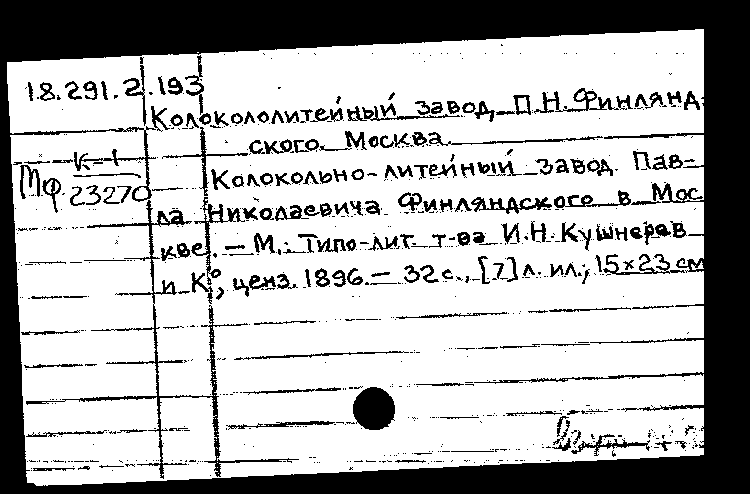 18.291.2.193
Колокололитейный завод, П.Н. Финлянд-
ского. Москва.
Мф. К-1
23270
Колокольно-литейный завод Пав-
ла Николаевича Финляндского в Мос
кве. — М.: Типо-лит. т-ва И.Н. Кушнерев
и К°, ценз. 1896. — 32 с., [7] л. ил.; 15×23 см